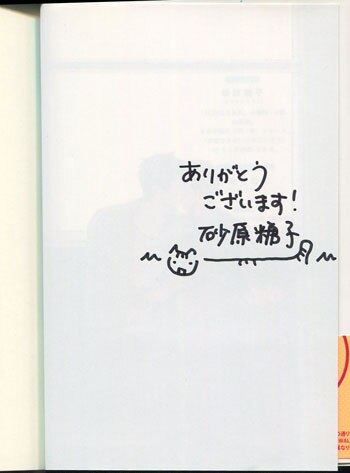 ありがとう
ございます!
砂原糖子